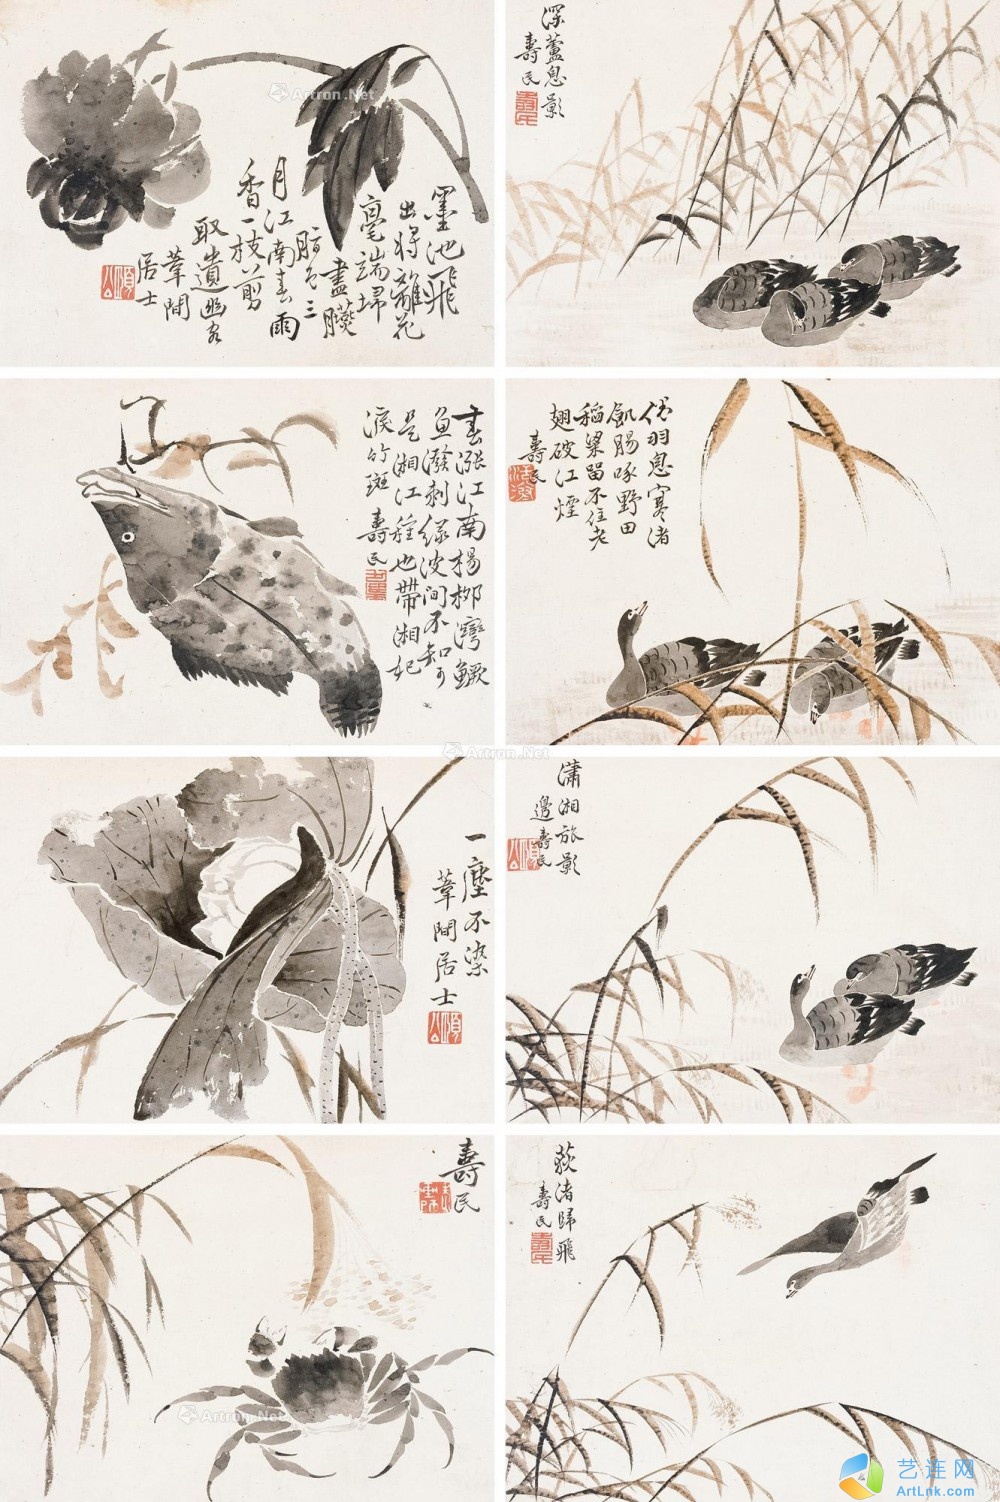 墨池飛
出將離花
毫端掃
盡臙
脂色三
月江南春雨
香一枝剪
取遺幽客
葦間
居士
頤公
深蘆息影
壽民
壽民
春漲江南楊柳灣鱖
魚潑刺綠波間不知可
是湘江種也帶湘妃
淚竹斑
壽民
倦羽息寒渚
飢腸啄野田
稻粱留不住老
翅破江煙
壽民
一塵不染
葦間居士
頤公
瀟湘旅影
邊壽民
頤公
壽民
荻渚歸飛
壽民
壽民
Artron.Net
Artron.Net
Artron.Net
艺连网
ArtLnk.com